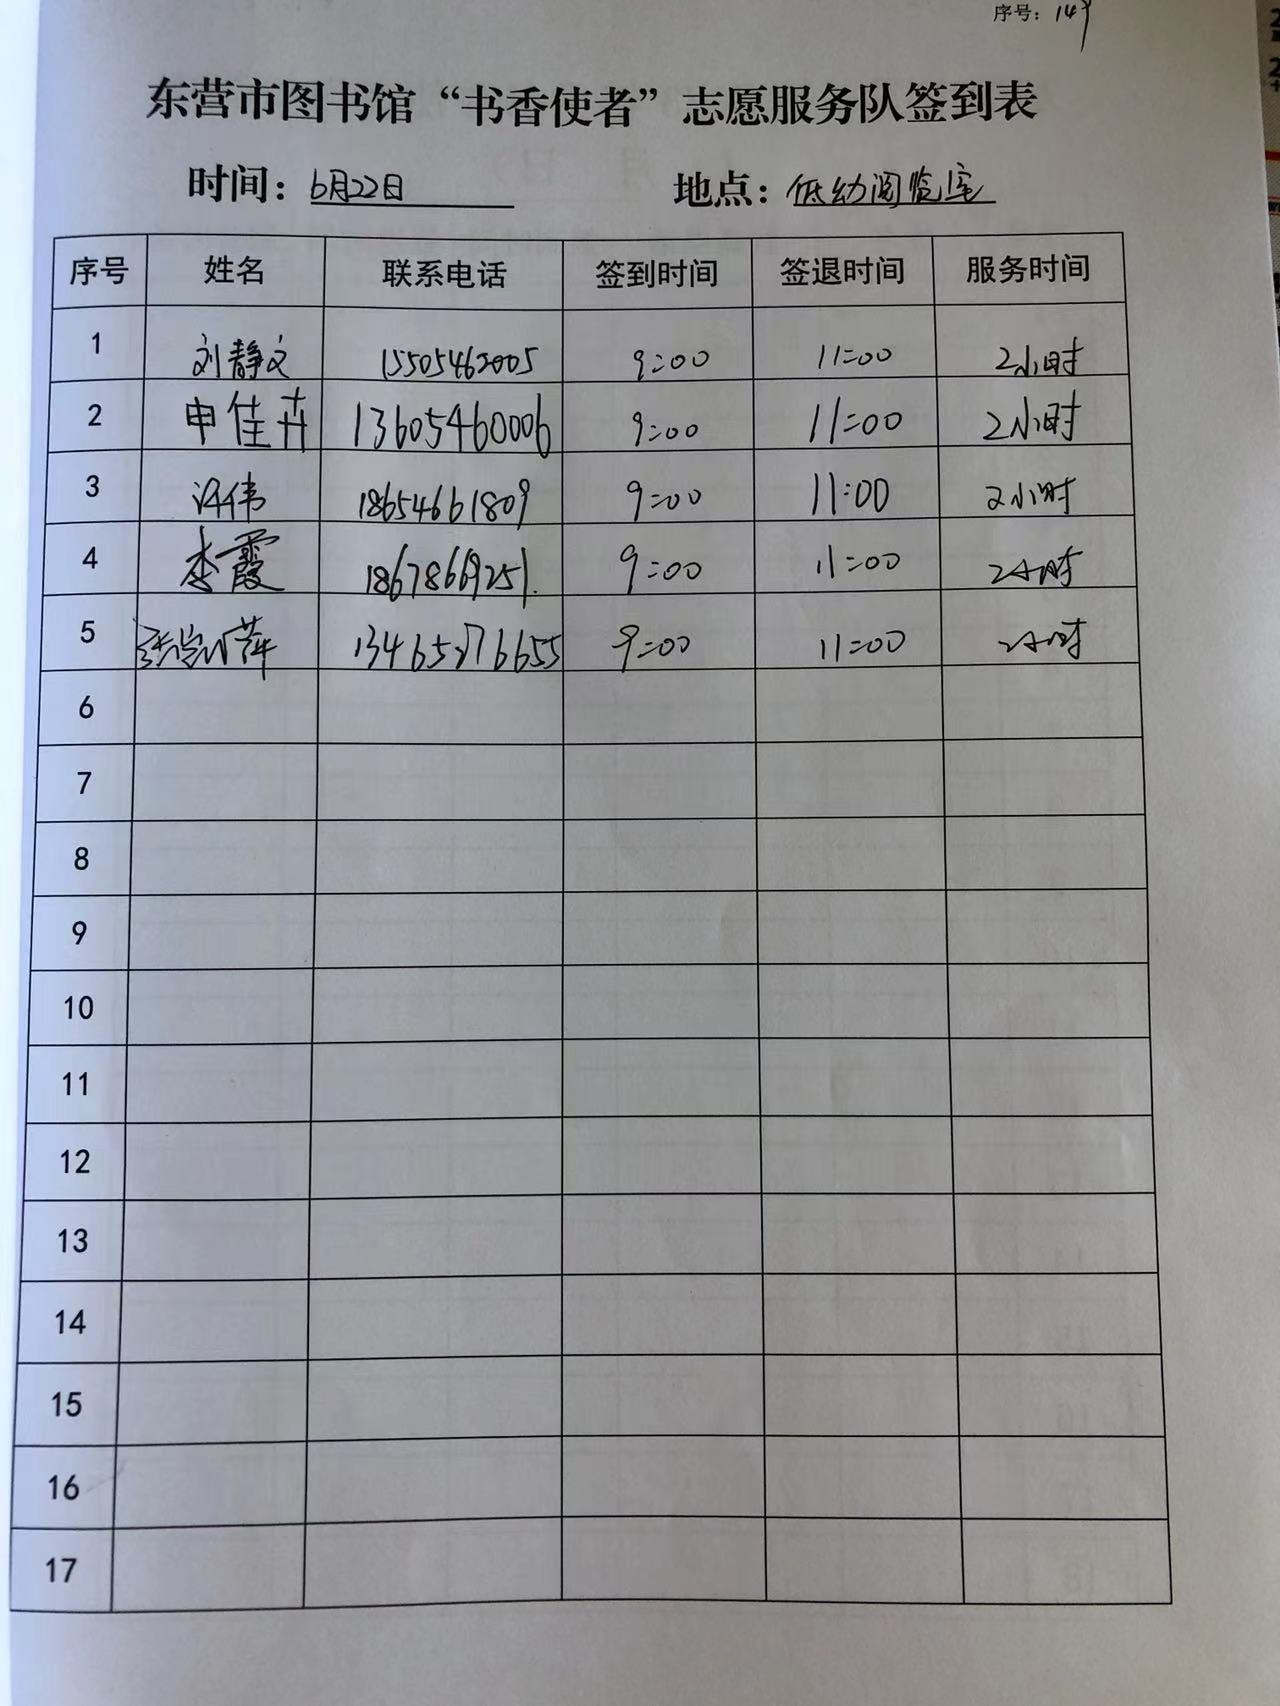 序号：149
东营市图书馆“书香使者”志愿服务队签到表
时间：6月22日 地点：低幼阅览室
序号 姓名 联系电话 签到时间 签退时间 服务时间
1 刘静文 15505462005 9:00 11:00 2小时
2 申佳卉 13605460006 9:00 11:00 2小时
3 许伟 18654661809 9:00 11:00 2小时
4 李霞 18678669251 9:00 11:00 2小时
5 13465276655 9:00 11:00 2小时
6
7
8
9
10
11
12
13
14
15
16
17